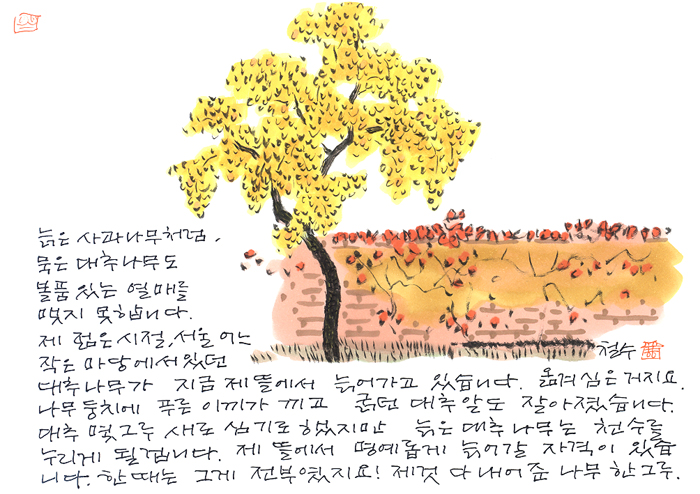 늙은 사과나무처럼,
묵은 대추나무도
볼품 있는 열매를
맺지 못합니다.
제 젊은 시절, 서울 어느
작은 마당에 서있던
대추나무가 지금 제 뜰에서 늙어가고 있습니다. 옮겨 심은 거지요.
나무 둥치에 푸른 이끼가 끼고 굵던 대추알도 잘아졌습니다.
대추 몇그루 새로 심기로 하였지만 늙은 대추나무는 천수를
누리게 될겁니다. 제 뜰에서 명예롭게 늙어갈 자격이 있습
니다. 한때는 그게 전부였지요! 제것 다 내어 준 나무 한그루.
철수